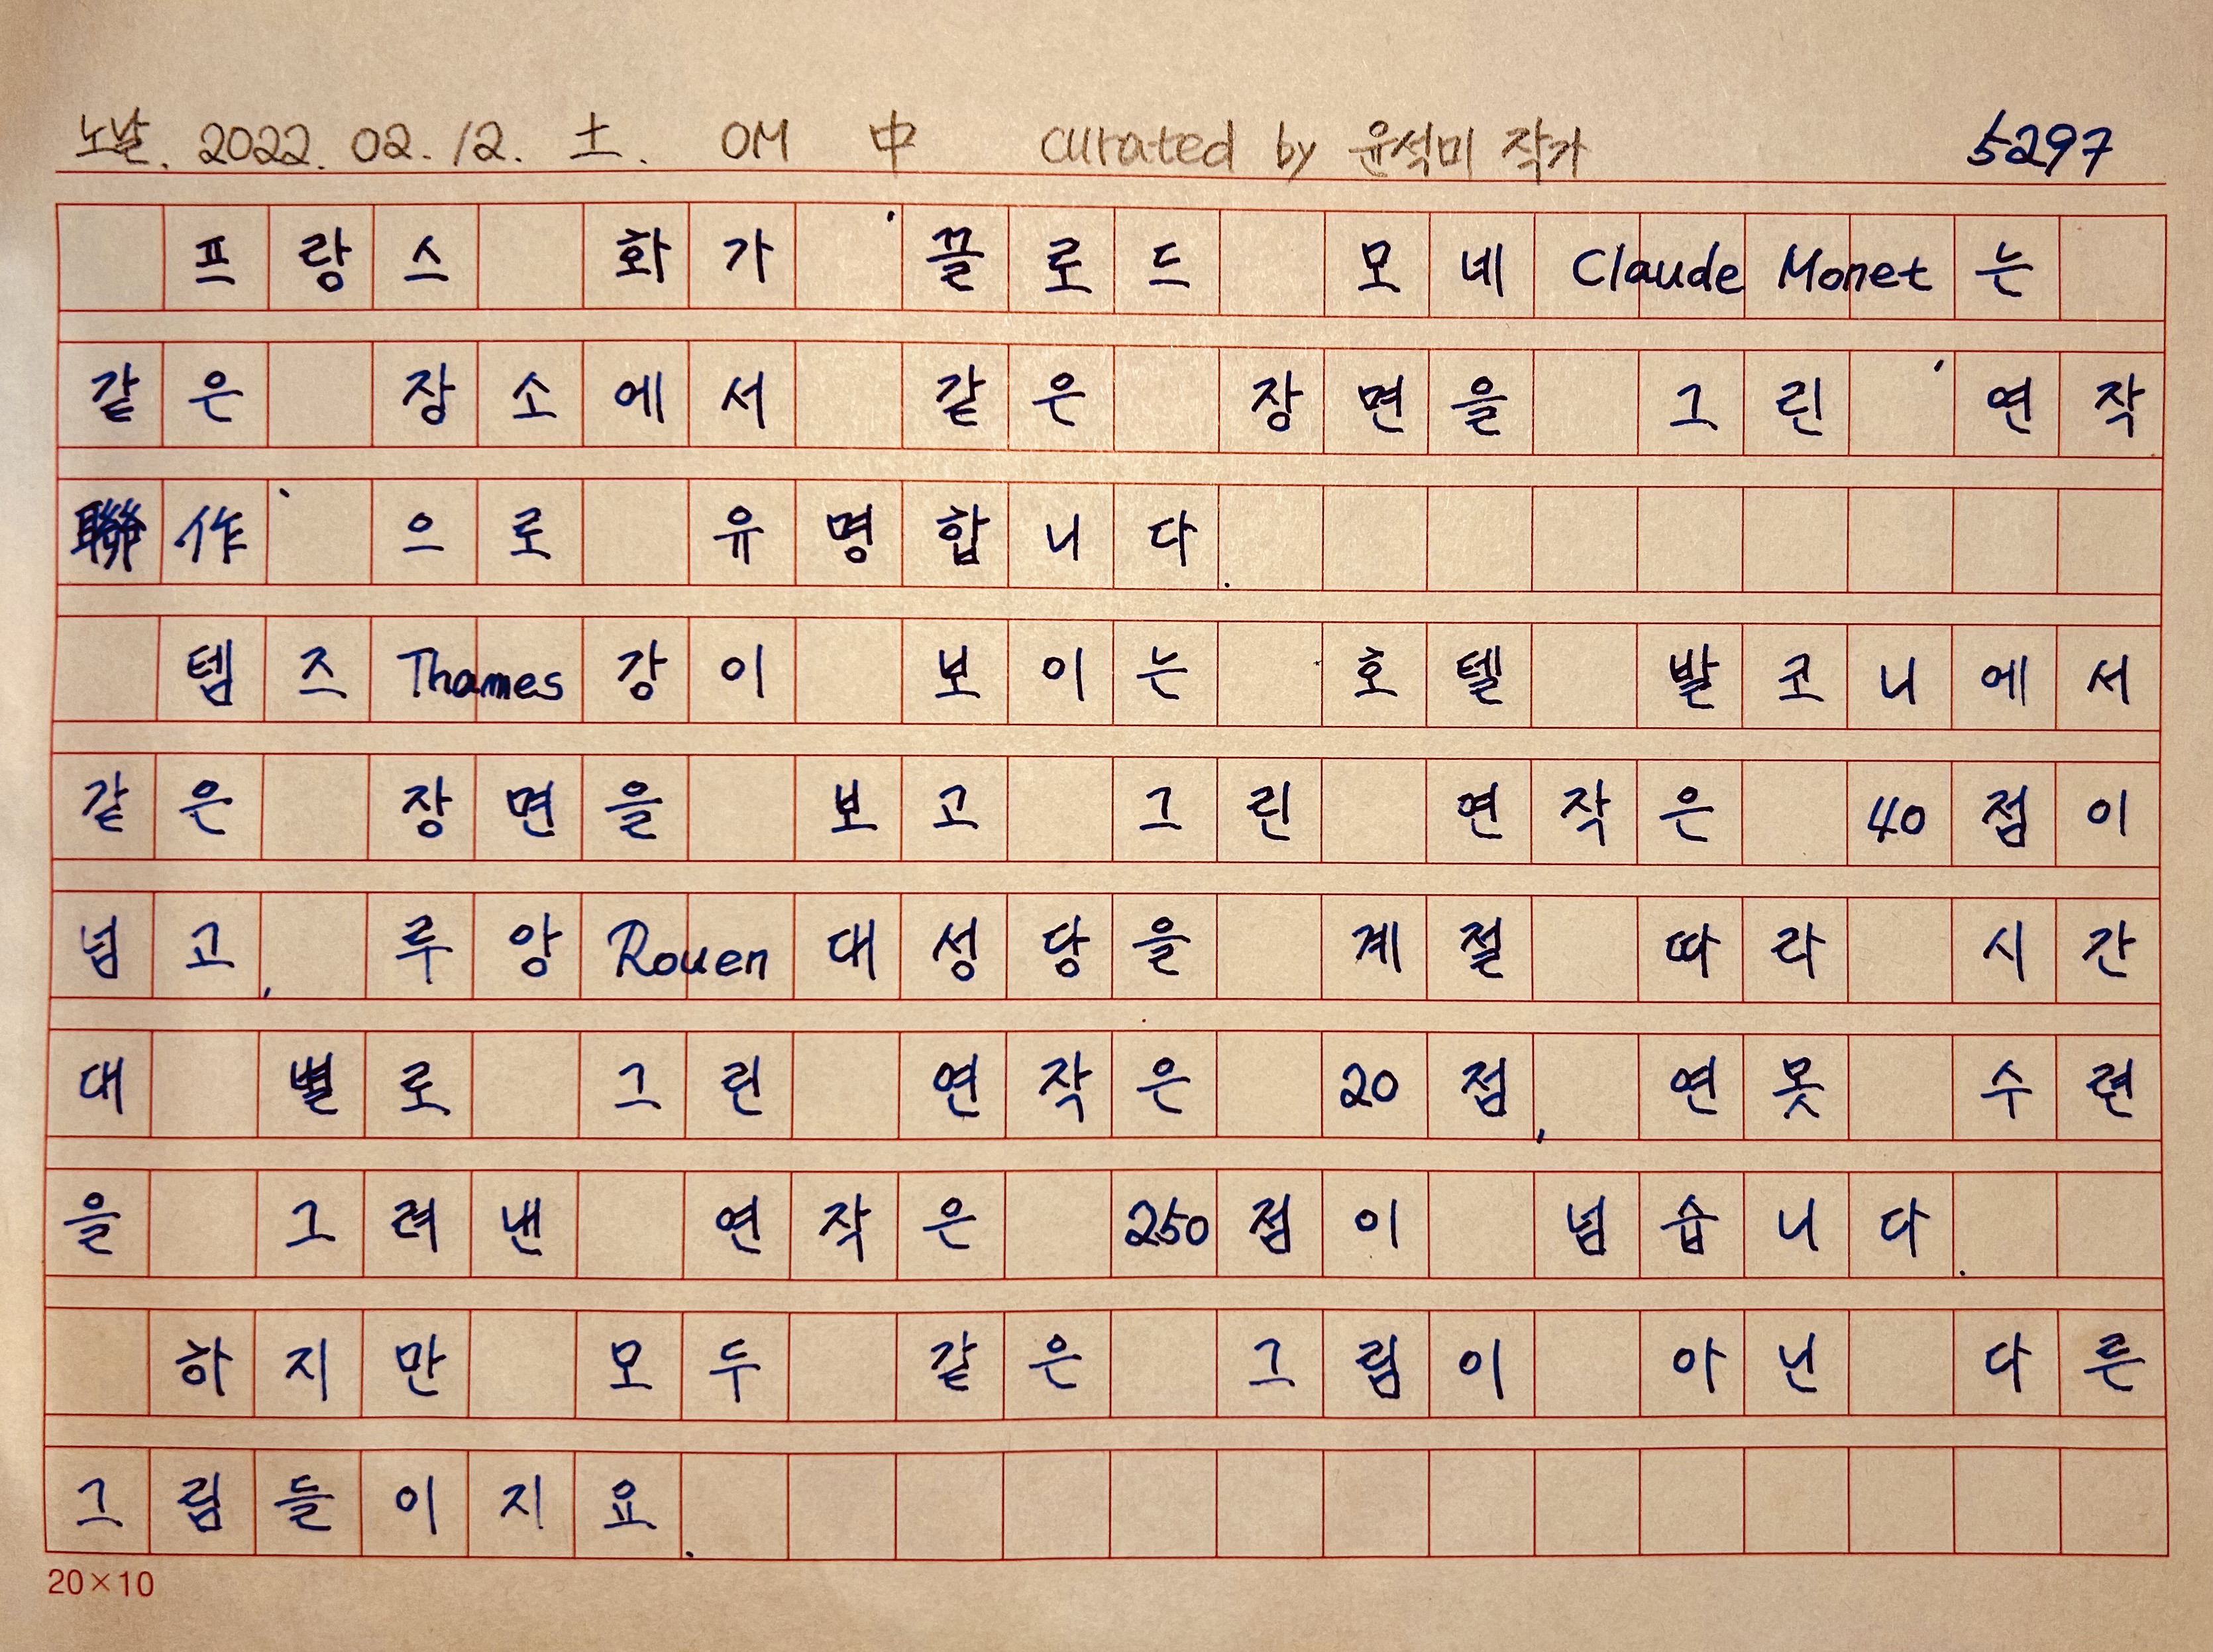 노날. 2022. 02. 12. 土. OM 中 curated by 윤석미 작가 5297
프랑스 화가 '끌로드 모네 Claude Monet는
같은 장소에서 같은 장면을 그린 '연작
聯作'으로 유명합니다.
템즈Thames강이 보이는 호텔 발코니에서
같은 장면을 보고 그린 연작은 40점이
넘고, 루앙Rouen대성당을 계절 따라 시간
대 별로 그린 연작은 20점, 연못 수련
을 그려낸 연작은 250점이 넘습니다.
하지만 모두 같은 그림이 아닌 다른
그림들이지요.
20×10